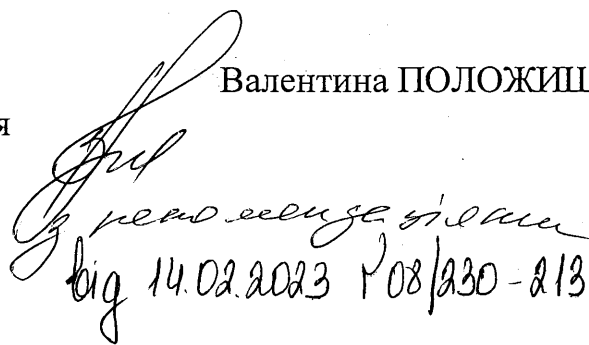 Валентина ПОЛОЖИШ
я
з рекомендаціями
від 14.02.2023 №08/230-213